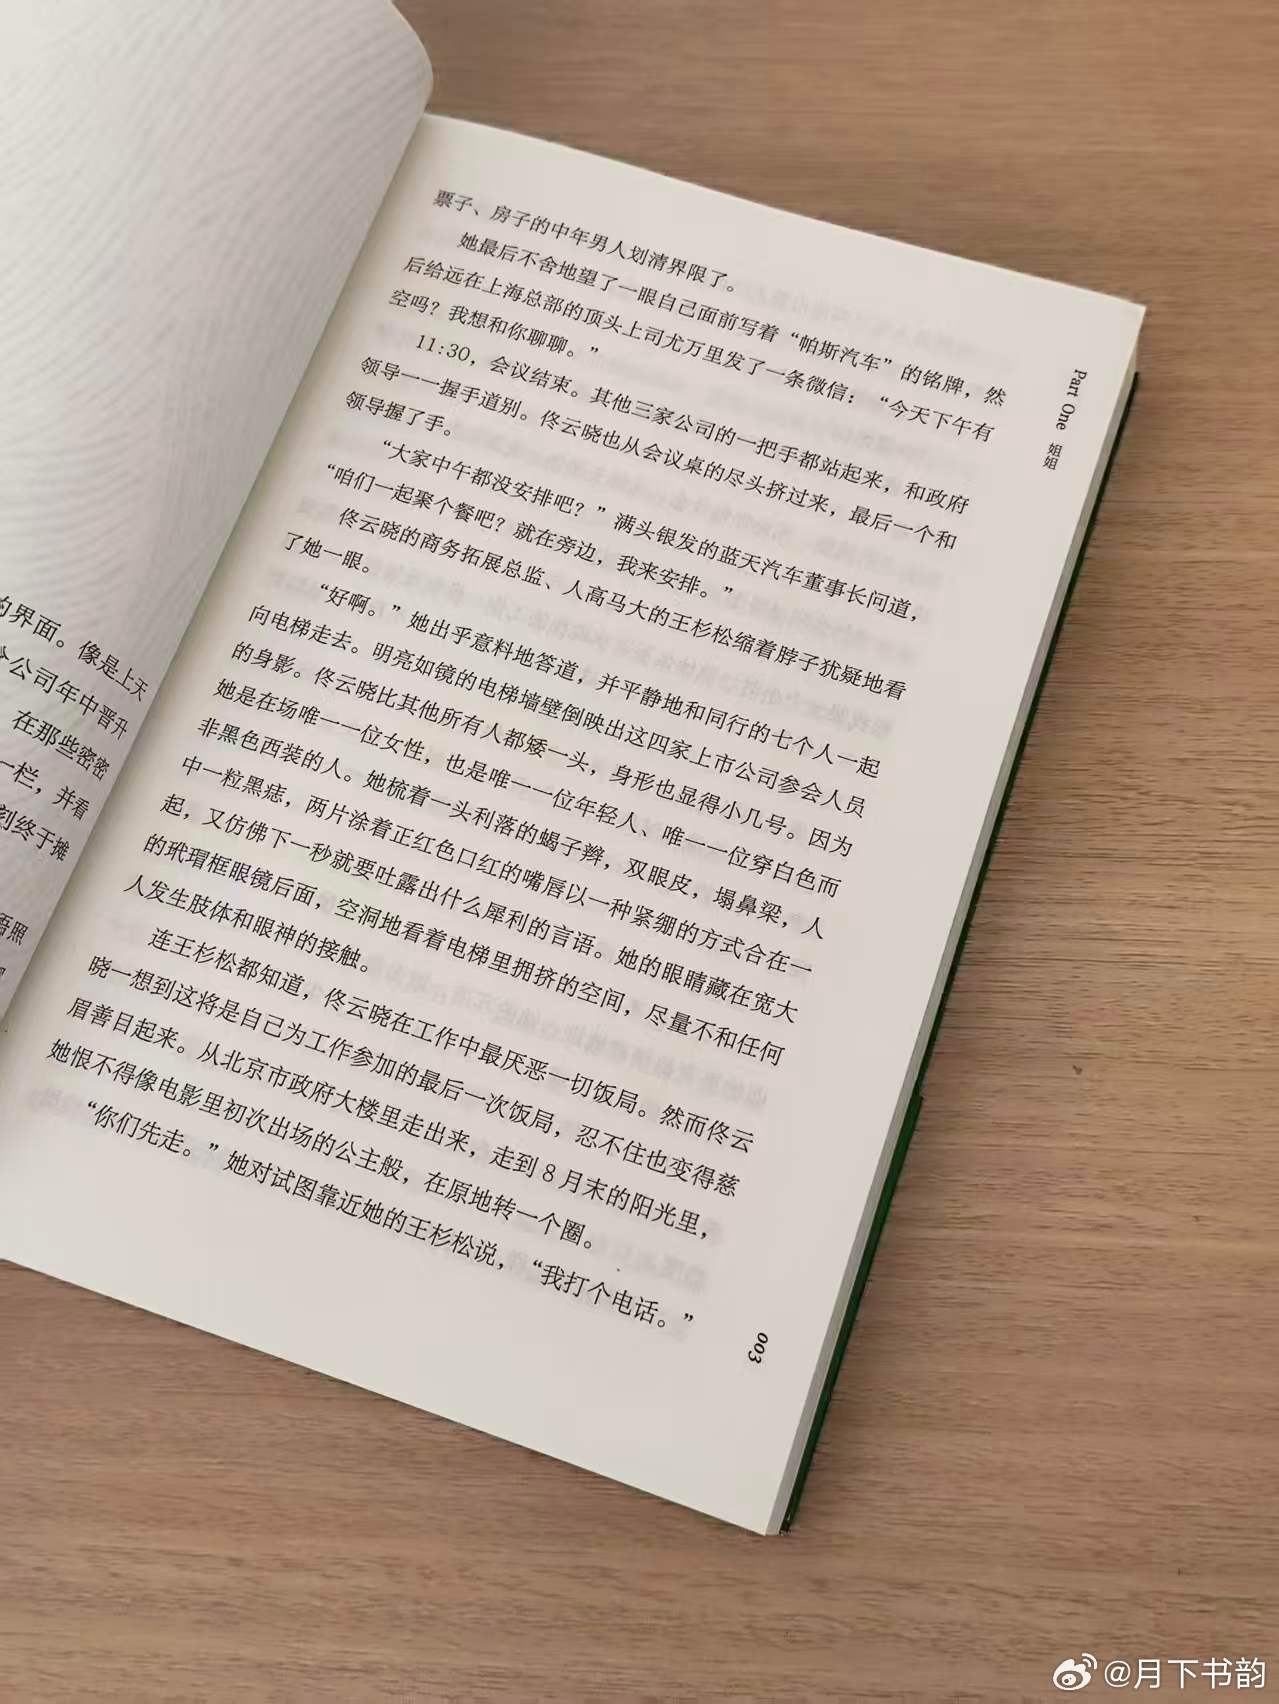 的界面。像是上天
公司年中晋升
在那些密密
一栏，并看
刻终于摊
悟照
票子、房子的中年男人划清界限了。
她最后不舍地望了一眼自己面前写着“帕斯汽车”的铭牌，然
后给远在上海总部的顶头上司尤万里发了一条微信：“今天下午有
空吗？我想和你聊聊。”
11:30，会议结束。其他三家公司的一把手都站起来，和政府
领导一一握手道别。佟云晓也从会议桌的尽头挤过来，最后一个和
领导握了手。
“大家中午都没安排吧？”满头银发的蓝天汽车董事长问道，
“咱们一起聚个餐吧？就在旁边，我来安排。”
佟云晓的商务拓展总监、人高马大的王杉松缩着脖子犹疑地看
了她一眼。
“好啊。”她出乎意料地答道，并平静地和同行的七个人一起
向电梯走去。明亮如镜的电梯墙壁倒映出这四家上市公司参会人员
的身影。佟云晓比其他所有人都矮一头，身形也显得小几号。因为
她是在场唯一一位女性，也是唯一一位年轻人、唯一一位穿白色而
非黑色西装的人。她梳着一头利落的蝎子辫，双眼皮，塌鼻梁，人
中一粒黑痣，两片涂着正红色口红的嘴唇以一种紧绷的方式合在一
起，又仿佛下一秒就要吐露出什么犀利的言语。她的眼睛藏在宽大
的玳瑁框眼镜后面，空洞地看着电梯里拥挤的空间，尽量不和任何
人发生肢体和眼神的接触。
连王杉松都知道，佟云晓在工作中最厌恶一切饭局。然而佟云
晓一想到这将是自己为工作参加的最后一次饭局，忍不住也变得慈
眉善目起来。从北京市政府大楼里走出来，走到8月末的阳光里，
她恨不得像电影里初次出场的公主般，在原地转一个圈。
“你们先走。”她对试图靠近她的王杉松说，“我打个电话。”
Part One 姐姐
003
@月下书韵